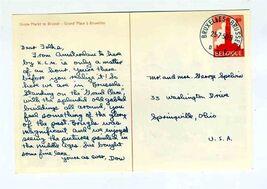 Grote Markt te Brussel - Grand Place à Bruxelles
Dear
From Amsterdam to here
by K.L.M. is only a matter
of an hour. You're there
before you realize it! So
here we are in Brussels.
Standing on the Grand Place,
with the splendid old gilded
buildings all around, you
feel something of the glory
of the past. Bruges was
magnificent and we enjoyed
seeing the pictures
the middle ages. She bought
some fine lace.
Yours as ever, Don
BRUXELLES BRUSSEL
BELGIQUE
Mr. and Mrs. George
33 Washington Drive
Springville, Ohio
U.S.A.